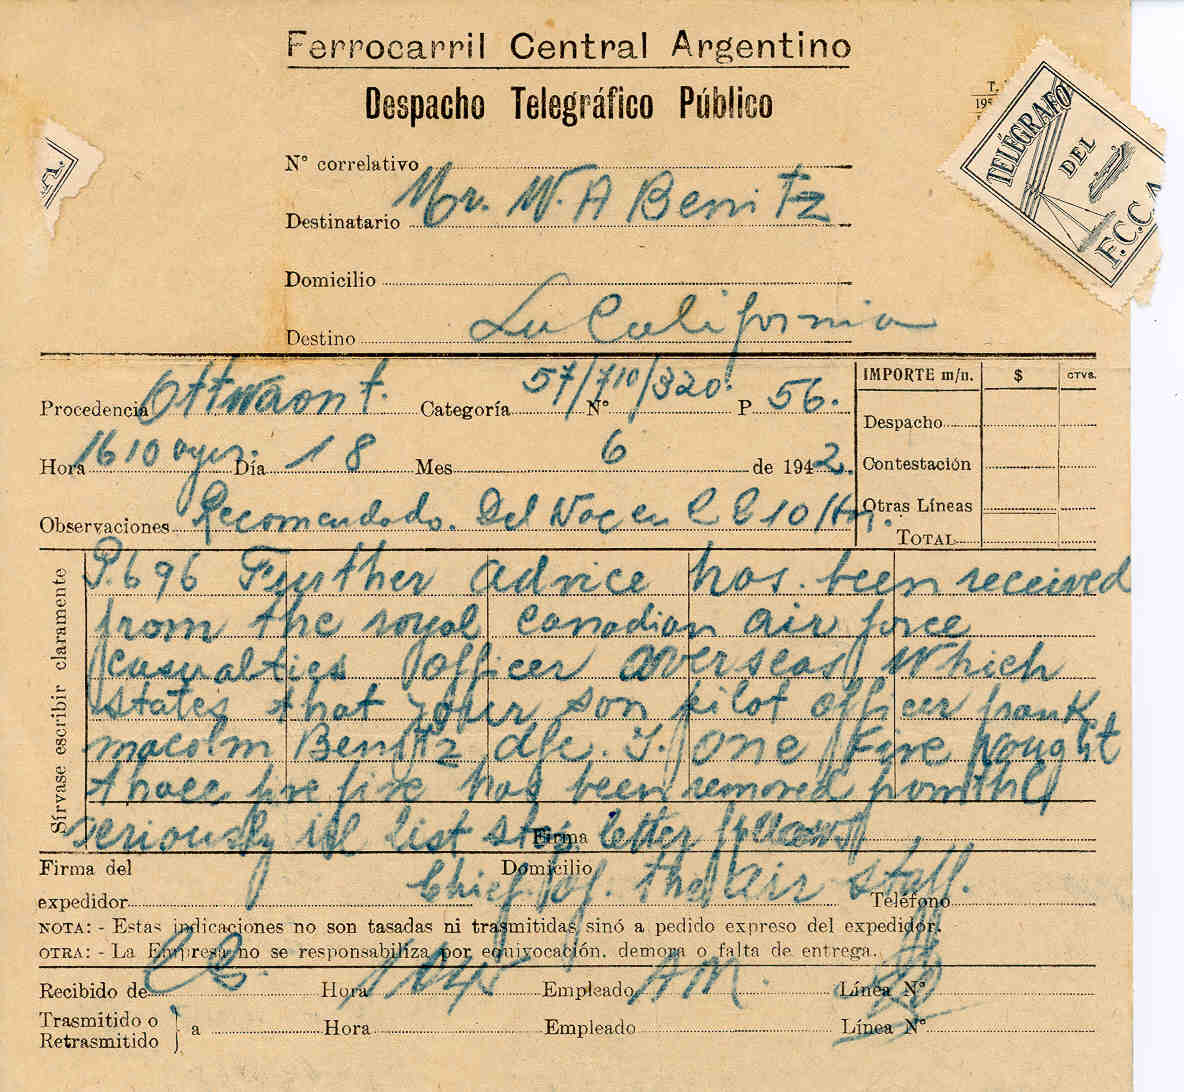 Ferrocarril Central Argentino
Despacho Telegráfico Público
T.
195
A.
TELÉGRAFO
DEL
F.C.C.A
N° correlativo
Destinatario Mr. W. A Benitz
Domicilio
Destino La California
Procedencia Ottwaont. Categoría 57/710/320. N° P 56.
IMPORTE m/n. $ CTVS.
Despacho
Hora 1610 ayer. Día 18 Mes 6 de 1942.
Contestación
Observaciones Recomendado. Del
Otras Líneas
TOTAL
Sírvase escribir claramente
P.696 Further advice has been received
from the royal canadian air force
casualties officer overseas which
states that your son pilot officer frank
macolm Benitz dfc. J. one five nought
three five five has been removed from the
seriously ill list stop letter follows
Firma
Firma del Domicilio
Chief. of. the air staff.
expedidor Teléfono
NOTA: - Estas indicaciones no son tasadas ni trasmitidas sinó a pedido expreso del expedidor.
OTRA: - La Empresa no se responsabiliza por equivocación, demora o falta de entrega.
Recibido de Hora Empleado AM. Línea N°
Trasmitido o
Retrasmitido } a Hora Empleado Línea N°